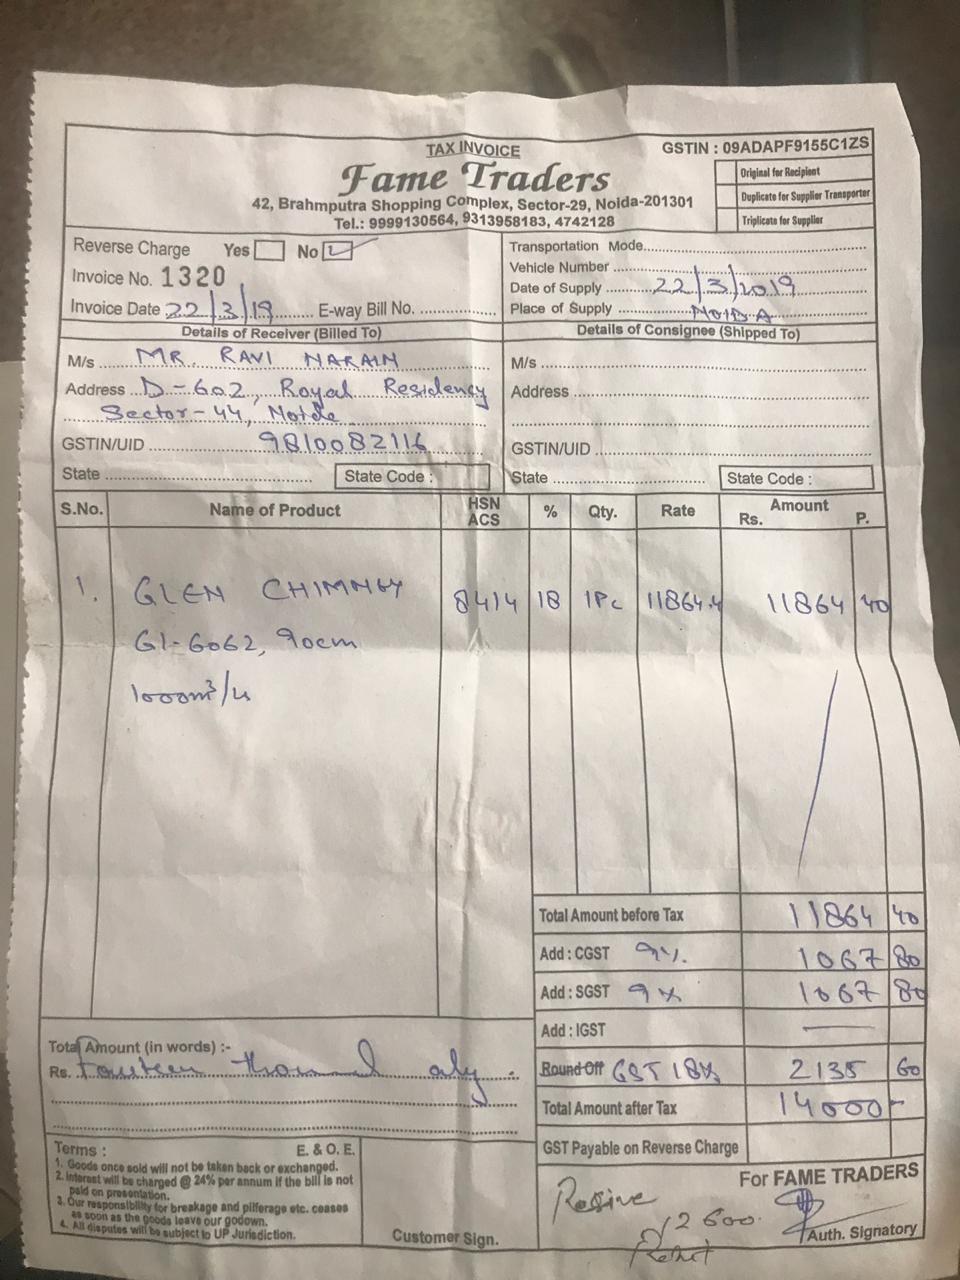 TAX INVOICE
GSTIN : 09ADAPF9155C1ZS
Fame Traders
42, Brahmputra Shopping Complex, Sector-29, Noida-201301
Tel.: 9999130564, 9313958183, 4742128
Original for Recipient
Duplicate for Supplier Transporter
Triplicate for Supplier
Reverse Charge Yes No
Invoice No. 1320
Invoice Date 22/3/19 E-way Bill No.
Transportation Mode
Vehicle Number
Date of Supply 22/3/2019
Place of Supply NOIDA
Details of Receiver (Billed To)
M/s MR. RAVI NARAIN
Address D-602, Royal Residency
Sector-44, Noida
GSTIN/UID 9810082116
State State Code :
Details of Consignee (Shipped To)
M/s
Address
GSTIN/UID
State State Code :
S.No. Name of Product HSN ACS % Qty. Rate Amount Rs. P.
1. GLEN CHIMNEY 8414 18 1Pc 11864.4 11864 40
GL-6062, 90cm
1000m³/H
Total Amount before Tax 11864 40
Add : CGST 9% 1067 80
Add : SGST 9% 1067 80
Add : IGST —
Round Off GST 18% 2135 60
Total Amount after Tax 14000/-
GST Payable on Reverse Charge
Total Amount (in words) :-
Rs. Fourteen thousand only.
Terms : E. & O. E.
1. Goods once sold will not be taken back or exchanged.
2. Interest will be charged @ 24% per annum if the bill is not
paid on presentation.
3. Our responsibility for breakage and pilferage etc. ceases
as soon as the goods leave our godown.
4. All disputes will be subject to UP Jurisdiction.
Customer Sign.
For FAME TRADERS
Ressive
12600
Auth. Signatory